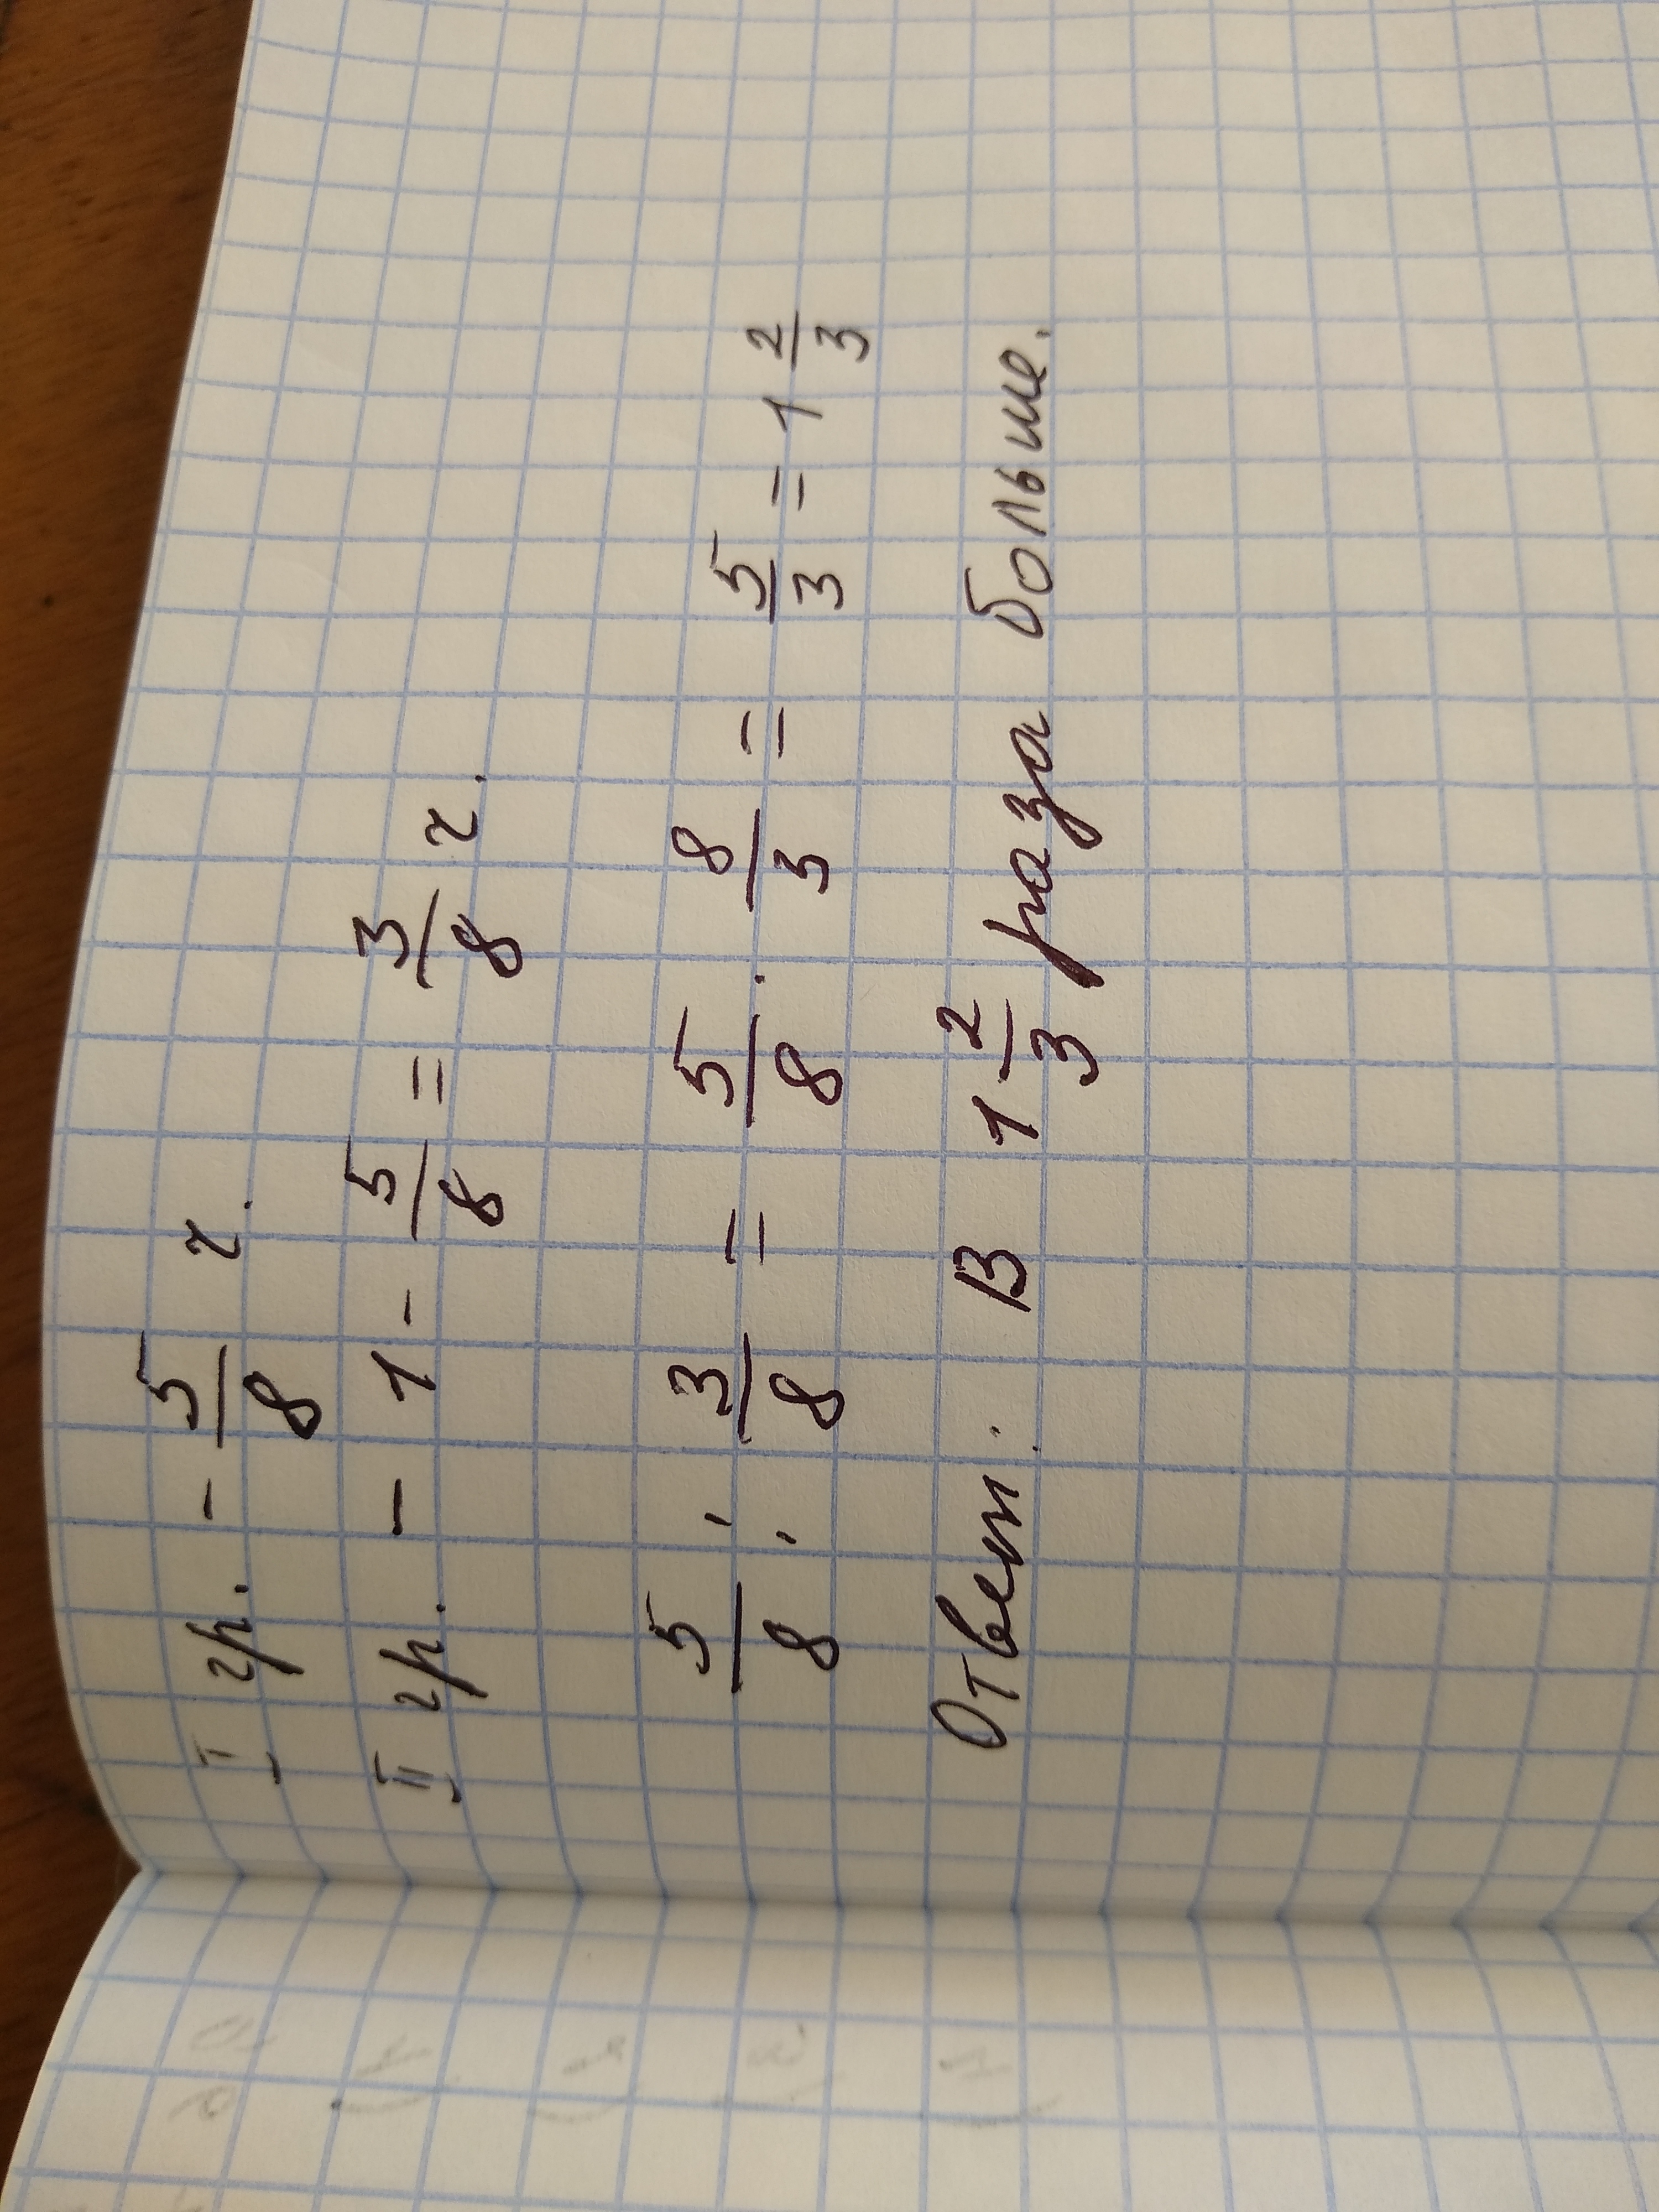 I гр. - 5/8 ч.
II гр. - 1 - 5/8 = 3/8 ч.
5/8 : 3/8 = 5/8 · 8/3 = 5/3 = 1 2/3
Ответ: В 1 2/3 раза больше.